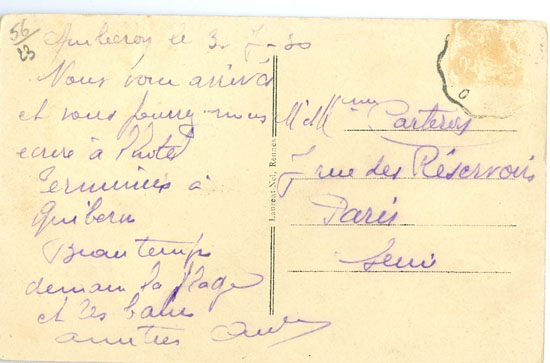 56/23
Quiberon le 3-7-30
Nous voici arrivés
et vous pouvez nous
écrire à l'hôtel
Terminus à
Quiberon
Beau temps
demain la plage
et les bains
amitiés
Laurent-Nel, Rennes
M et Mme
7 rue des Réservoirs
Paris
Seine